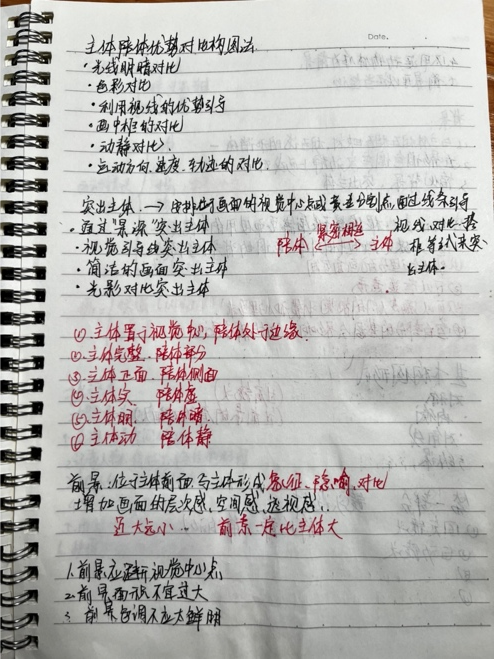 Date.
主体陪体优势对比构图法
·光线明暗对比
·色彩对比
·利用视线的优势引导
·画中框的对比
·动静对比
·运动方向、速度、轨迹的对比.
突出主体. → 安排位于画面的视觉中心点或黄金分割点,通过线条引导
视线、对比、搭
框等方式来突
出主体.
·通过"景深"突出主体
·视觉引导线突出主体
陪体 紧密相连 主体
·简洁的画面突出主体
·光影对比突出主体
①主体置于视觉中心,陪体处于边缘.
②主体完整 陪体部分
③主体正面 陪体侧面
④主体实 陪体虚
⑤主体明. 陪体暗
⑥主体动 陪体静
前景:位于主体前面与主体形成象征、隐喻、对比
增加画面的层次感、空间感、透视感.
近大远小 前景一定比主体大
1.前景应避开视觉中心点
2.前景面积不宜过大
3. 前景色调不应太鲜明